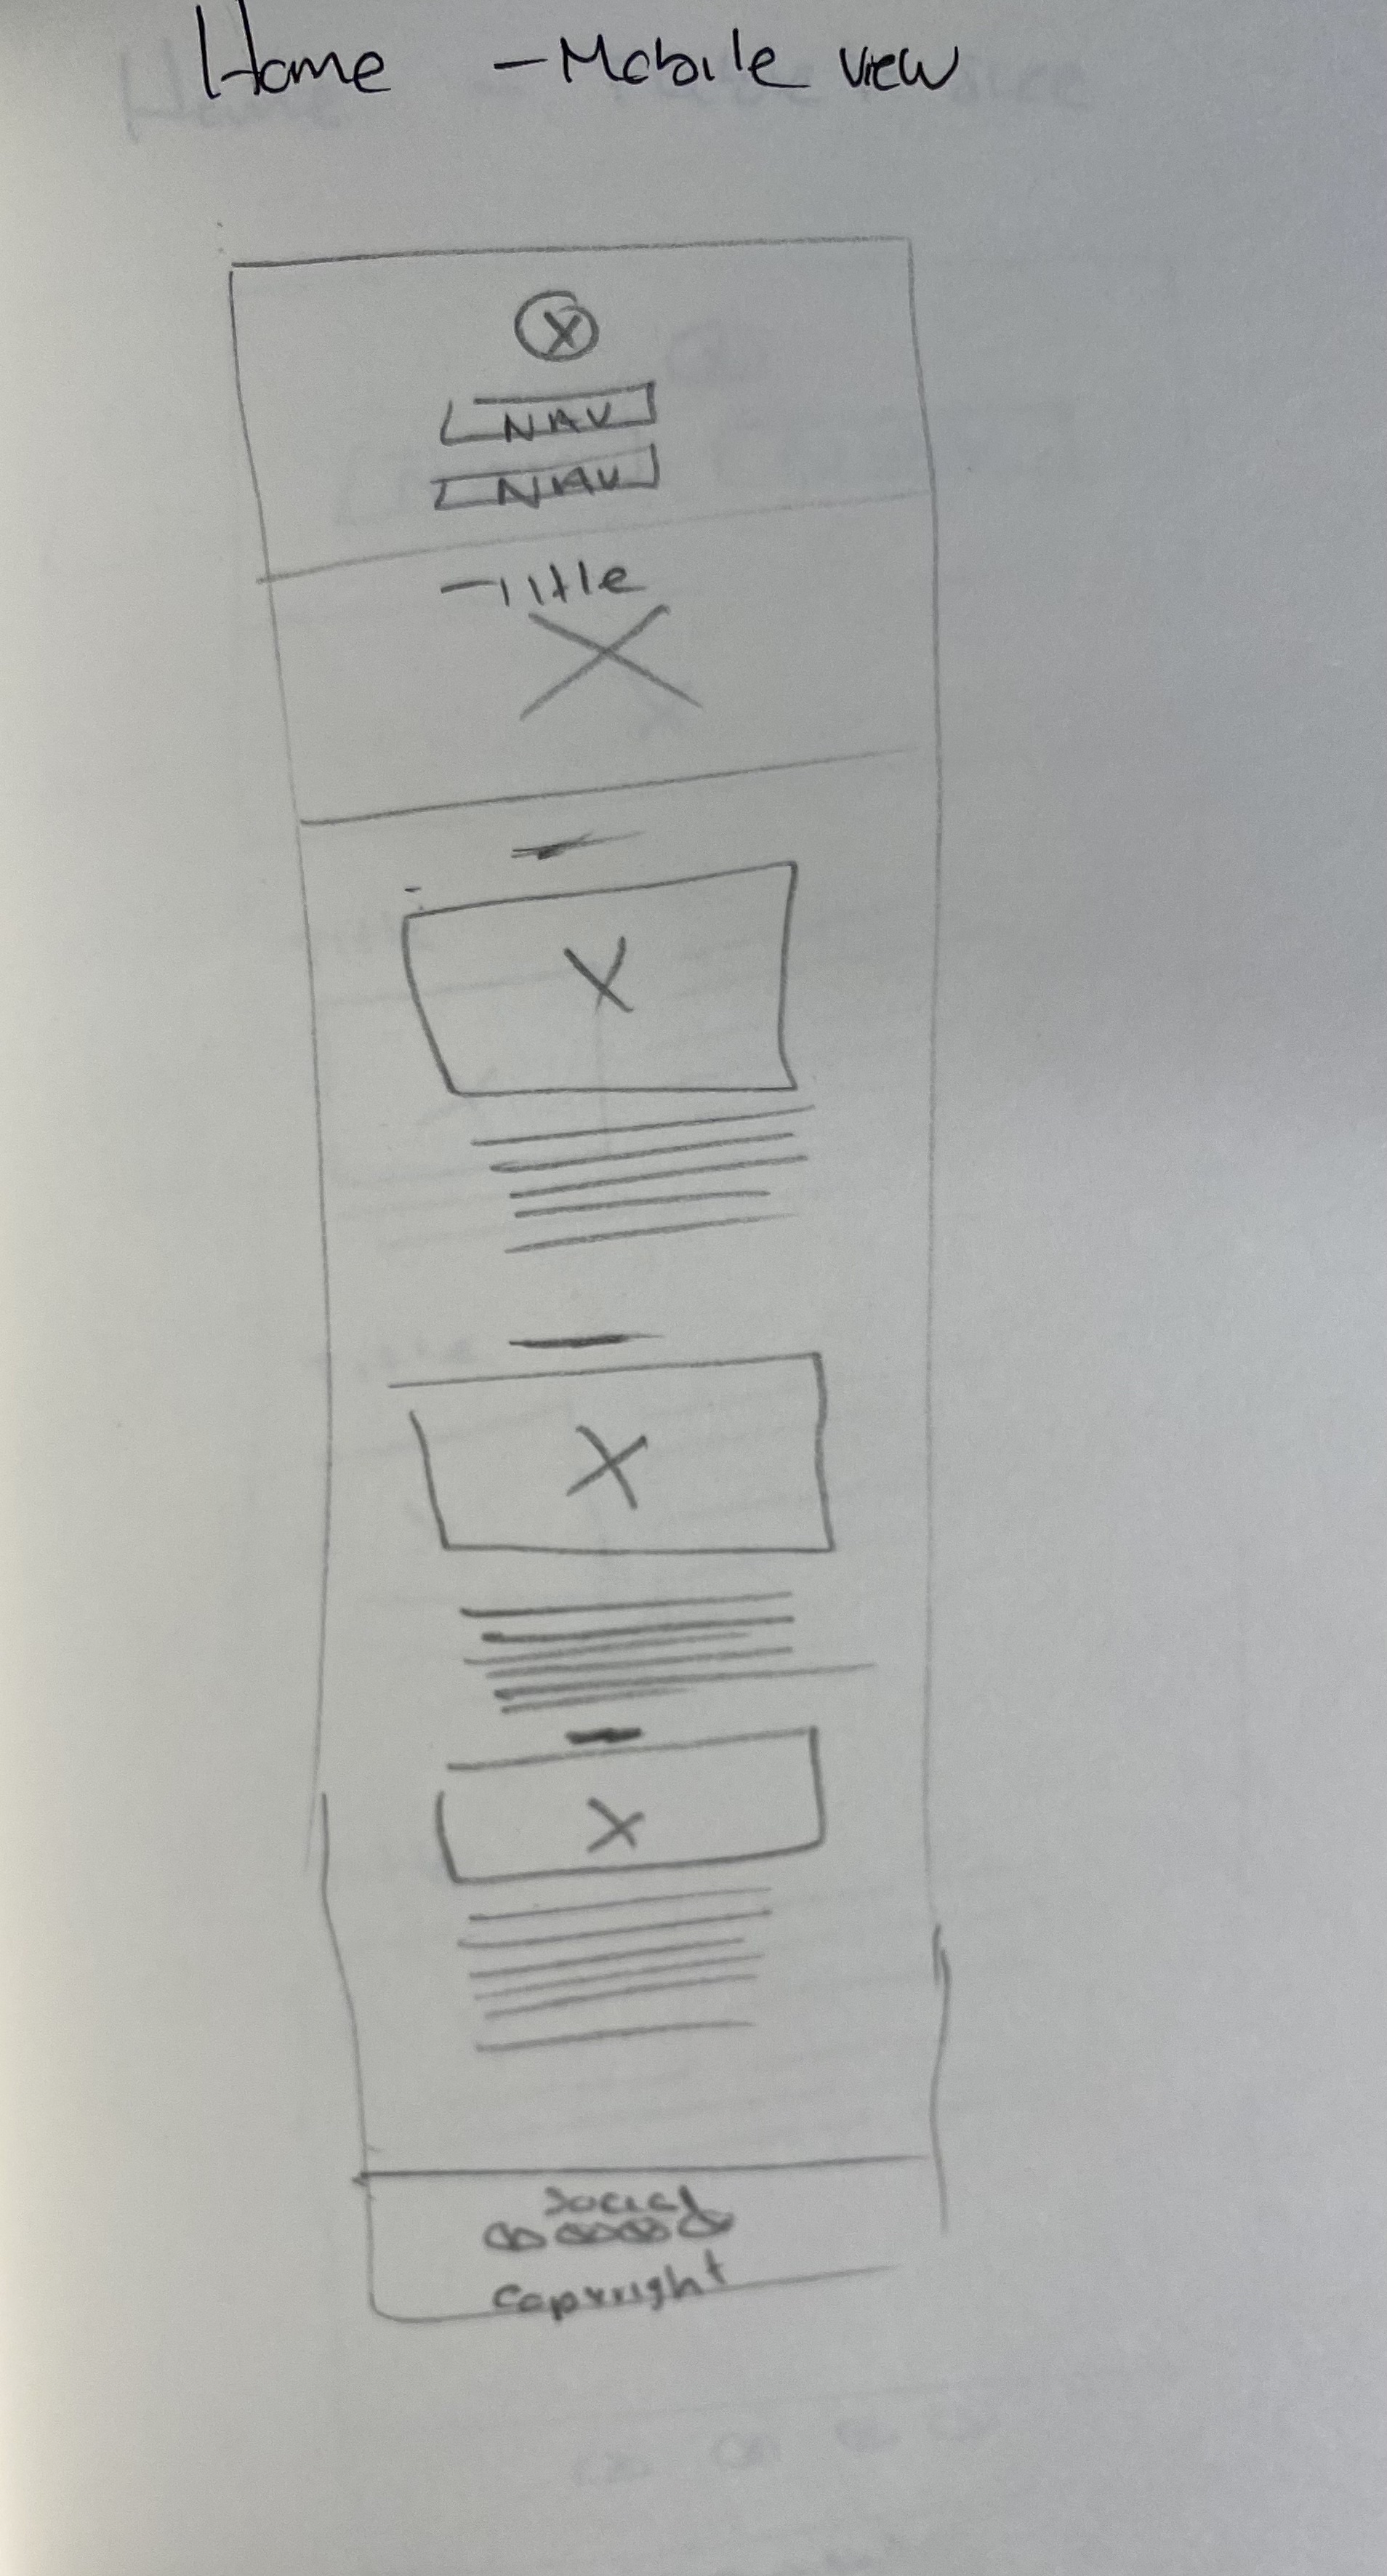 Home - Mobile view
NAV
NAV
Title
Social
Copyright